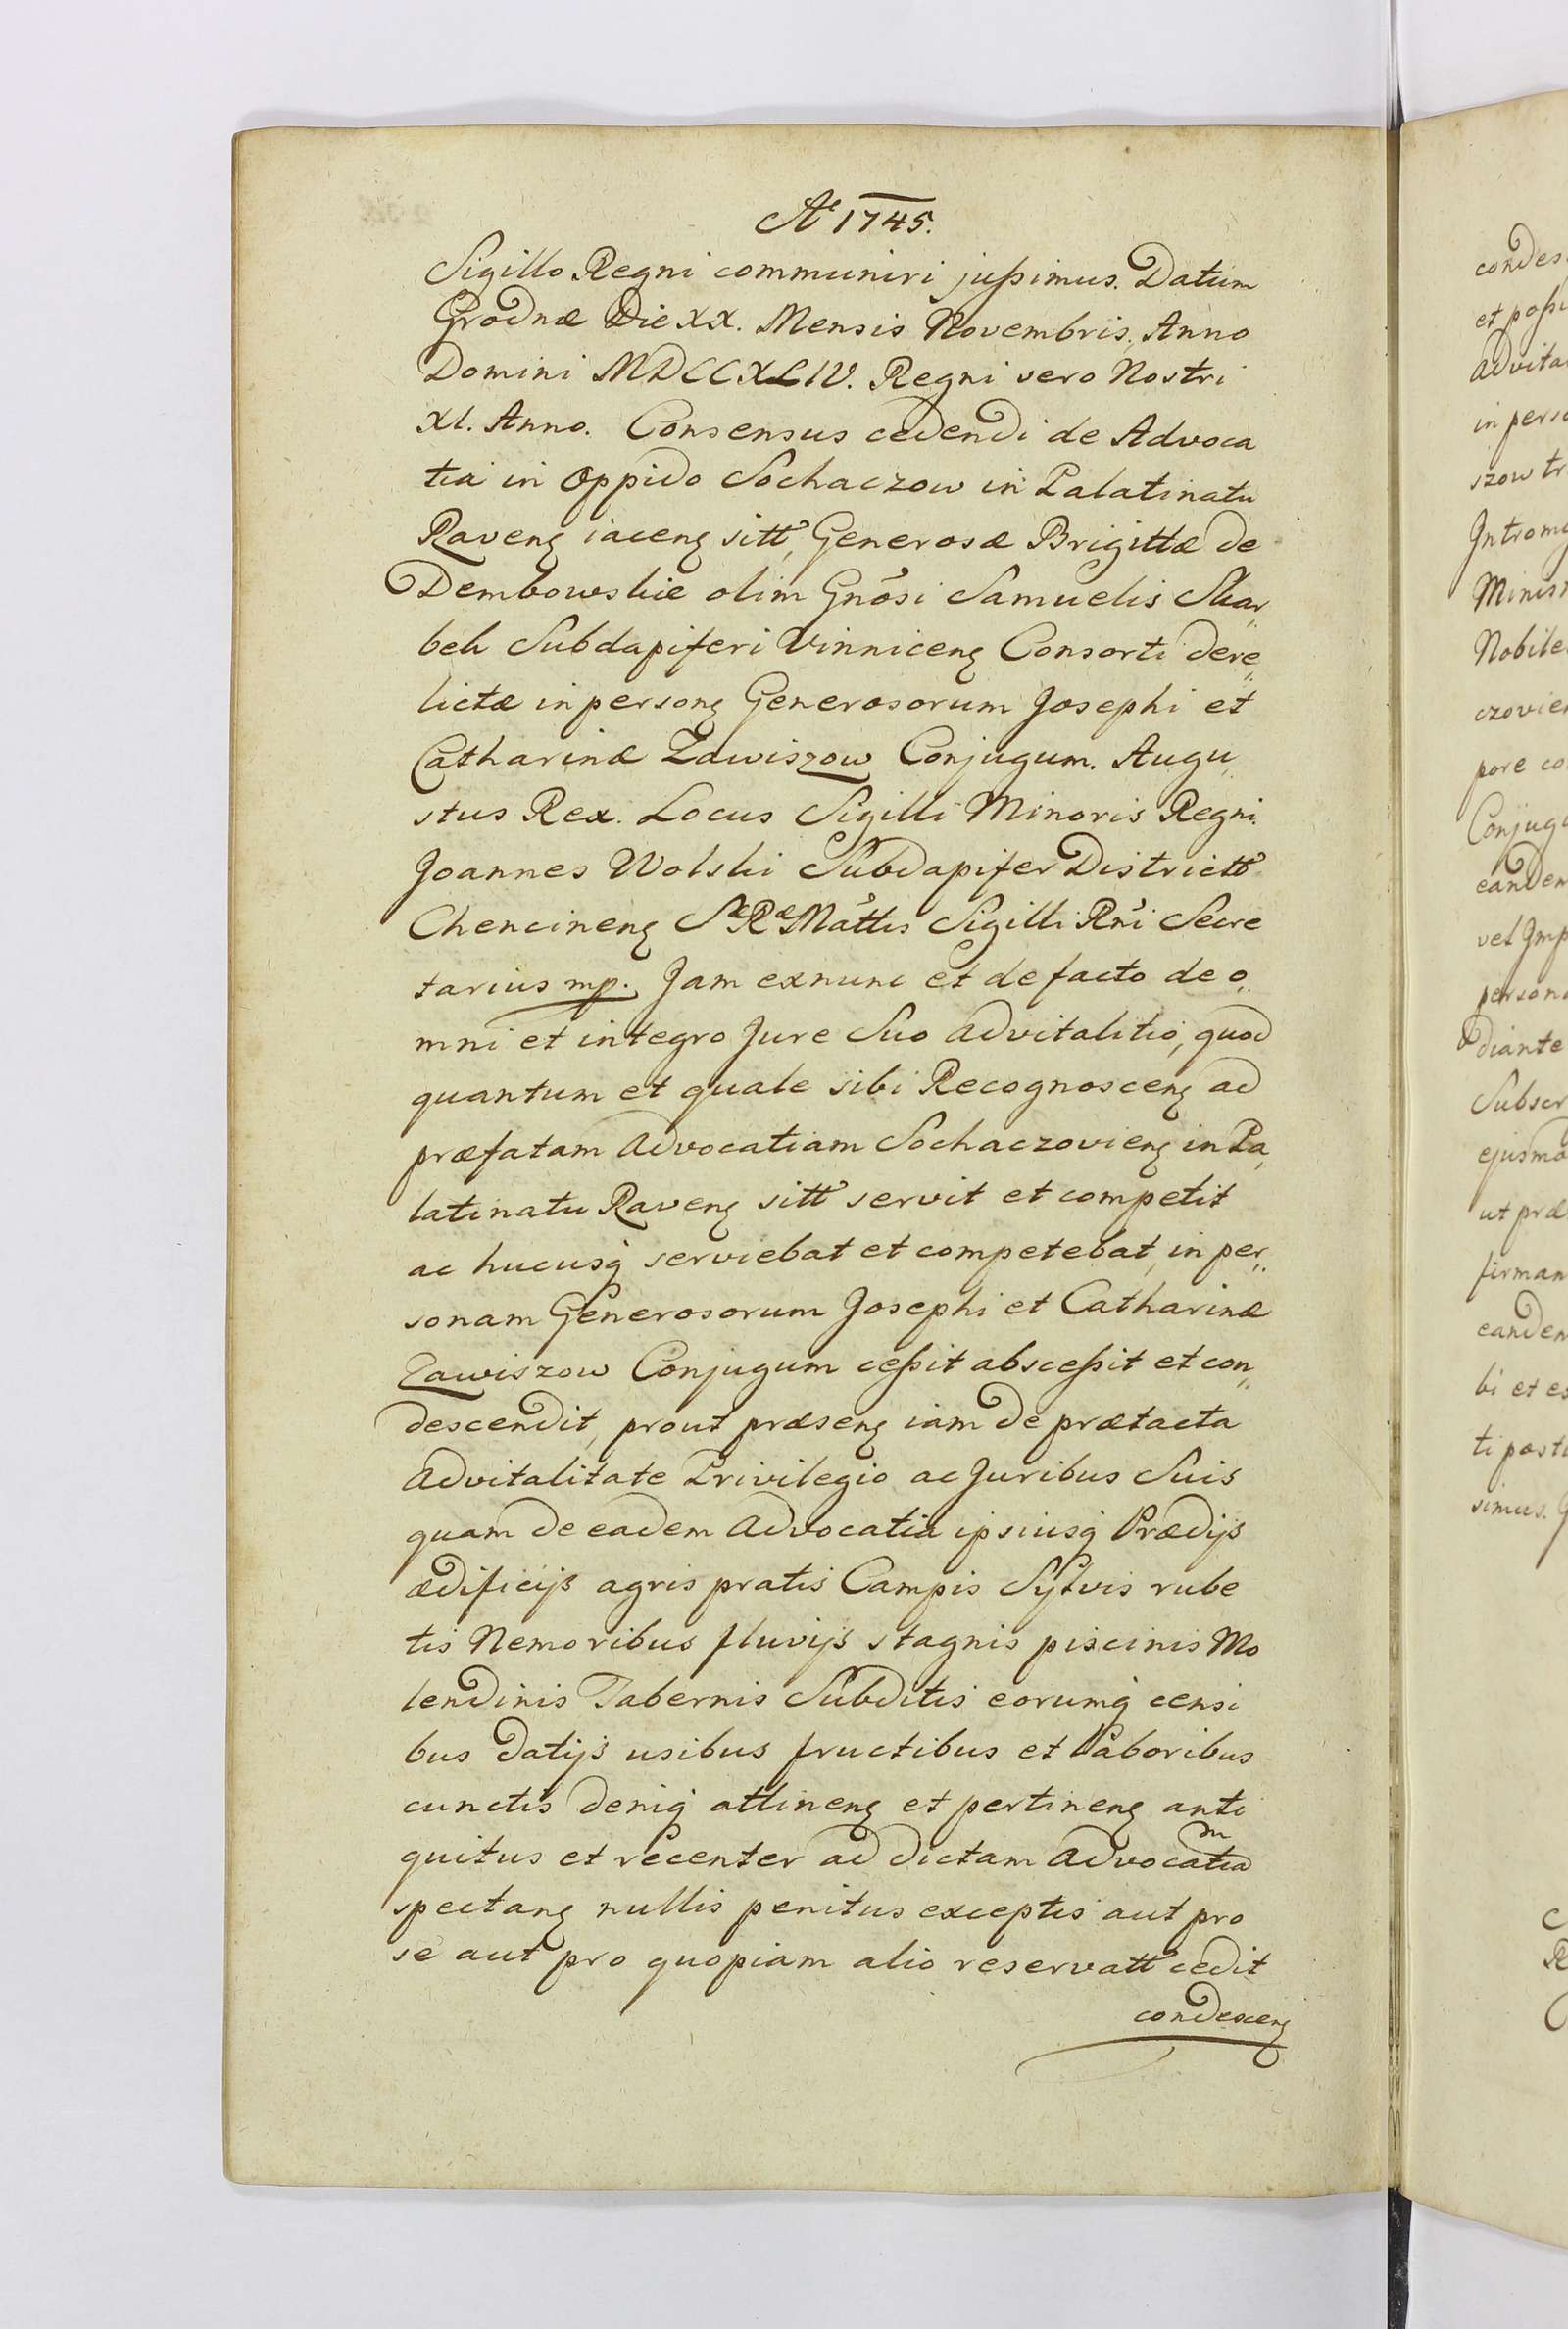 Aº 1745.
Sigillo Regni communiri jussimus. Datum
Grodnæ Die XX. Mensis Novembris. Anno
Domini MDCCXLIV. Regni vero Nostri
XI. Anno. Consensus cedendi de Advoca
tia in Oppido Sochaczow in Palatinatu
Ravenȩ iacenȩ sitt, Generosæ Brigittæ de
Dembowskie olim Gnosi Samuelis Skar„
bek Subdapiferi Vinnicenȩ Consorti dere„
lictæ in personȩ Generosorum Josephi et
Catharinæ Zawiszow Conjugum. Augu„
stus Rex. Locus Sigilli Minoris Regni.
Joannes Wolski Subdapifer Districtt
Chencinenȩ Sæ Ræ Mattis Sigilli Rni Secre
tarius mp. Jam exnunc et de facto de o„
mni et integro Jure Suo advitalitio, quod
quantum et quale sibi Recognoscenȩ ad
præfatam Advocatiam Sochaczovienȩ in Pa„
latinatu Ravenȩ sitt servit et competit
ac hucusq serviebat et competebat, in per„
sonam Generosorum Josephi et Catharinæ
Zawiszow Conjugum cessit abscessit et con„
descendit, prout præsenȩ iam de prætacta
Advitalitate Privilegio ac Juribus Suis
quam de eadem Advocatia ipsiusq Prædijs
ædificijs agris pratis Campis Sylvis rube
tis Nemoribus fluvijs stagnis piscinis Mo
lendinis Tabernis Subditis eorumq censi
bus datijs usibus fructibus et laboribus
cunctis deniq attinenȩ et pertinenȩ anti
quitus et recenter ad dictam Advocatiam
spectanȩ nullis penitus exceptis aut pro
se aut pro quopiam alio reservatt cedit
condescenȩ
condes
et possi
advita
in perso
szow tr
Intromi
Minist
Nobile
czovien
pore co
Conjugu
eandem
vel Imp
persona
diante
Subscr
ejusmo
ut præ
firman
eandem
bi et es
ti posti
simus.